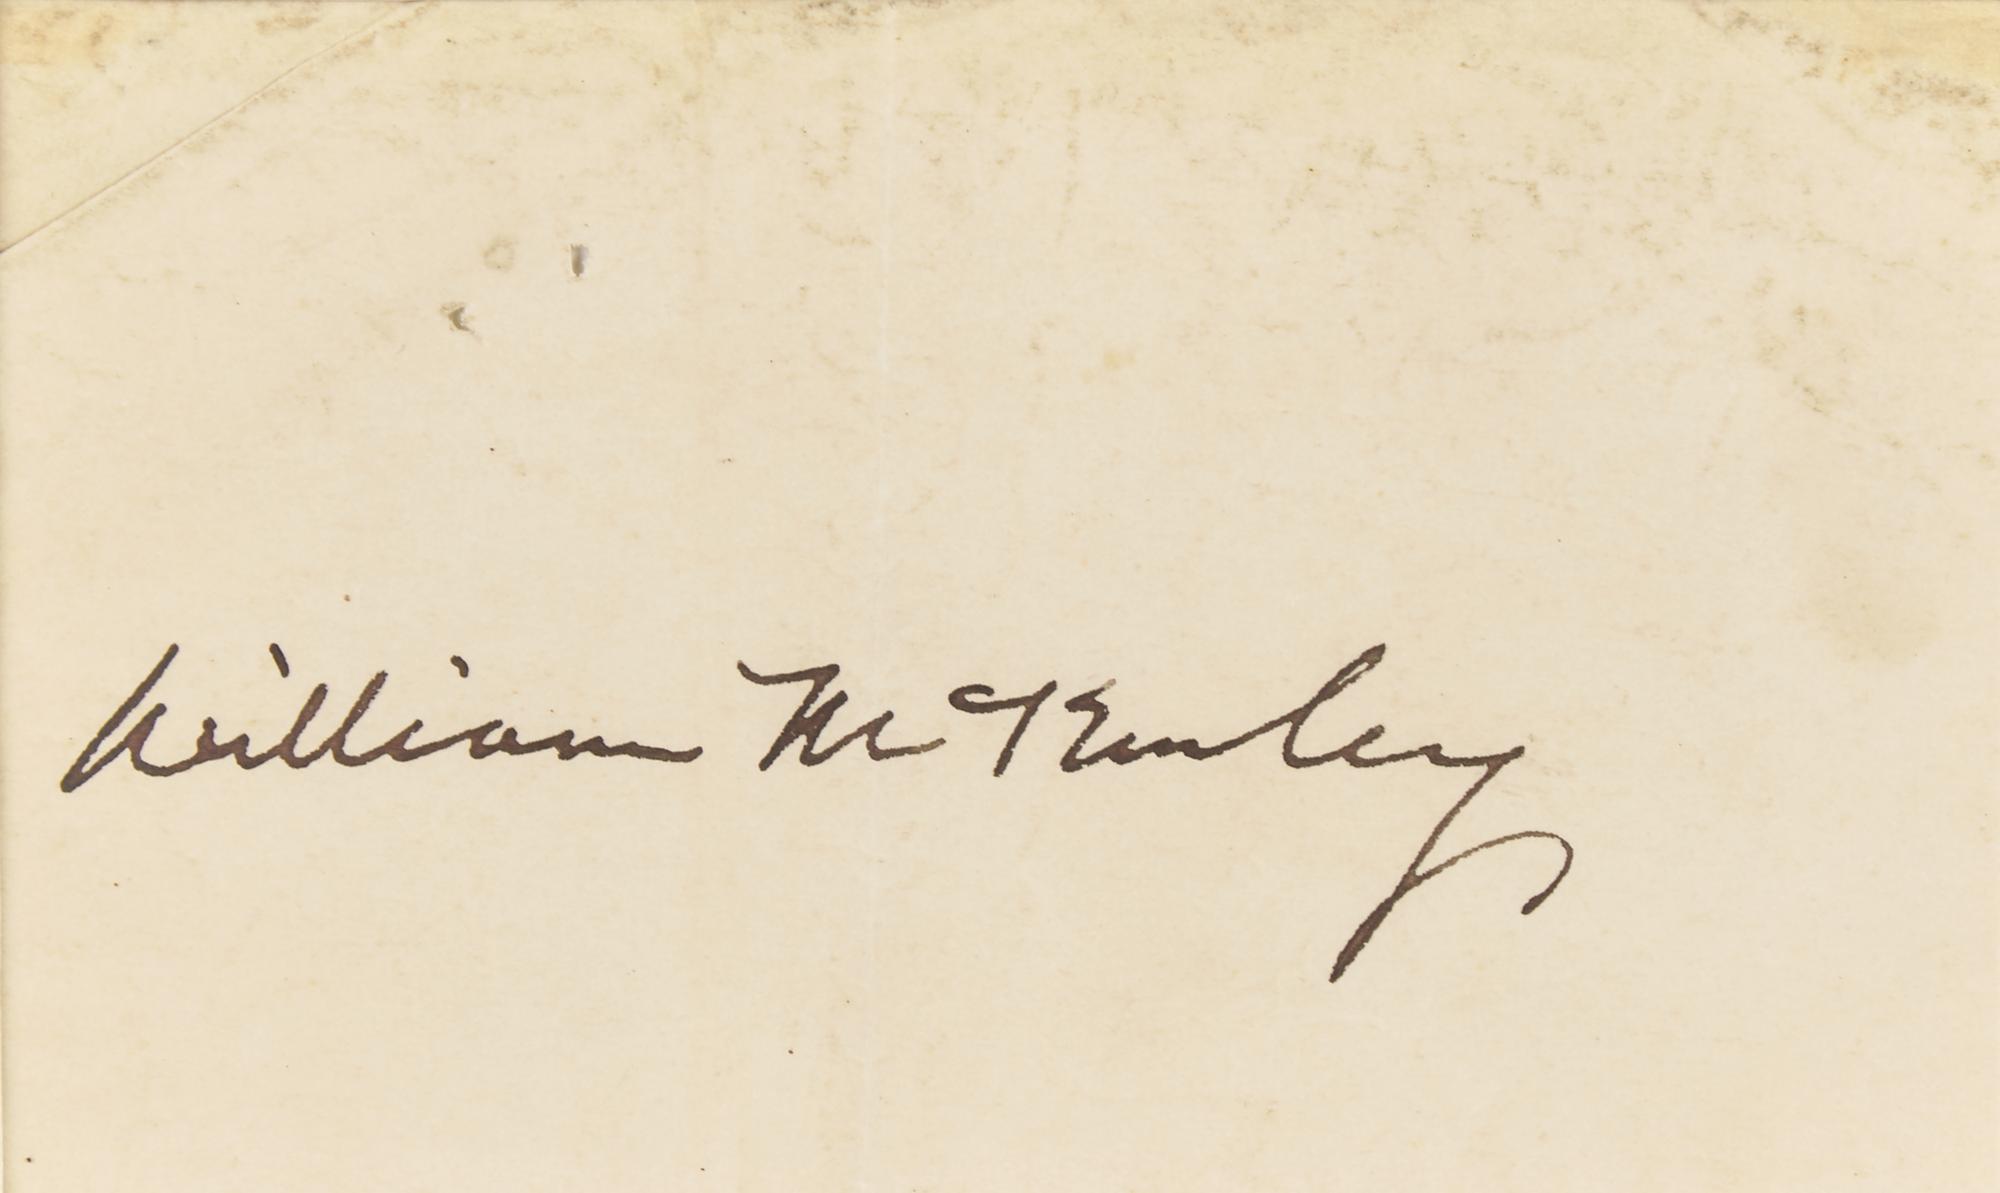 William McKinley